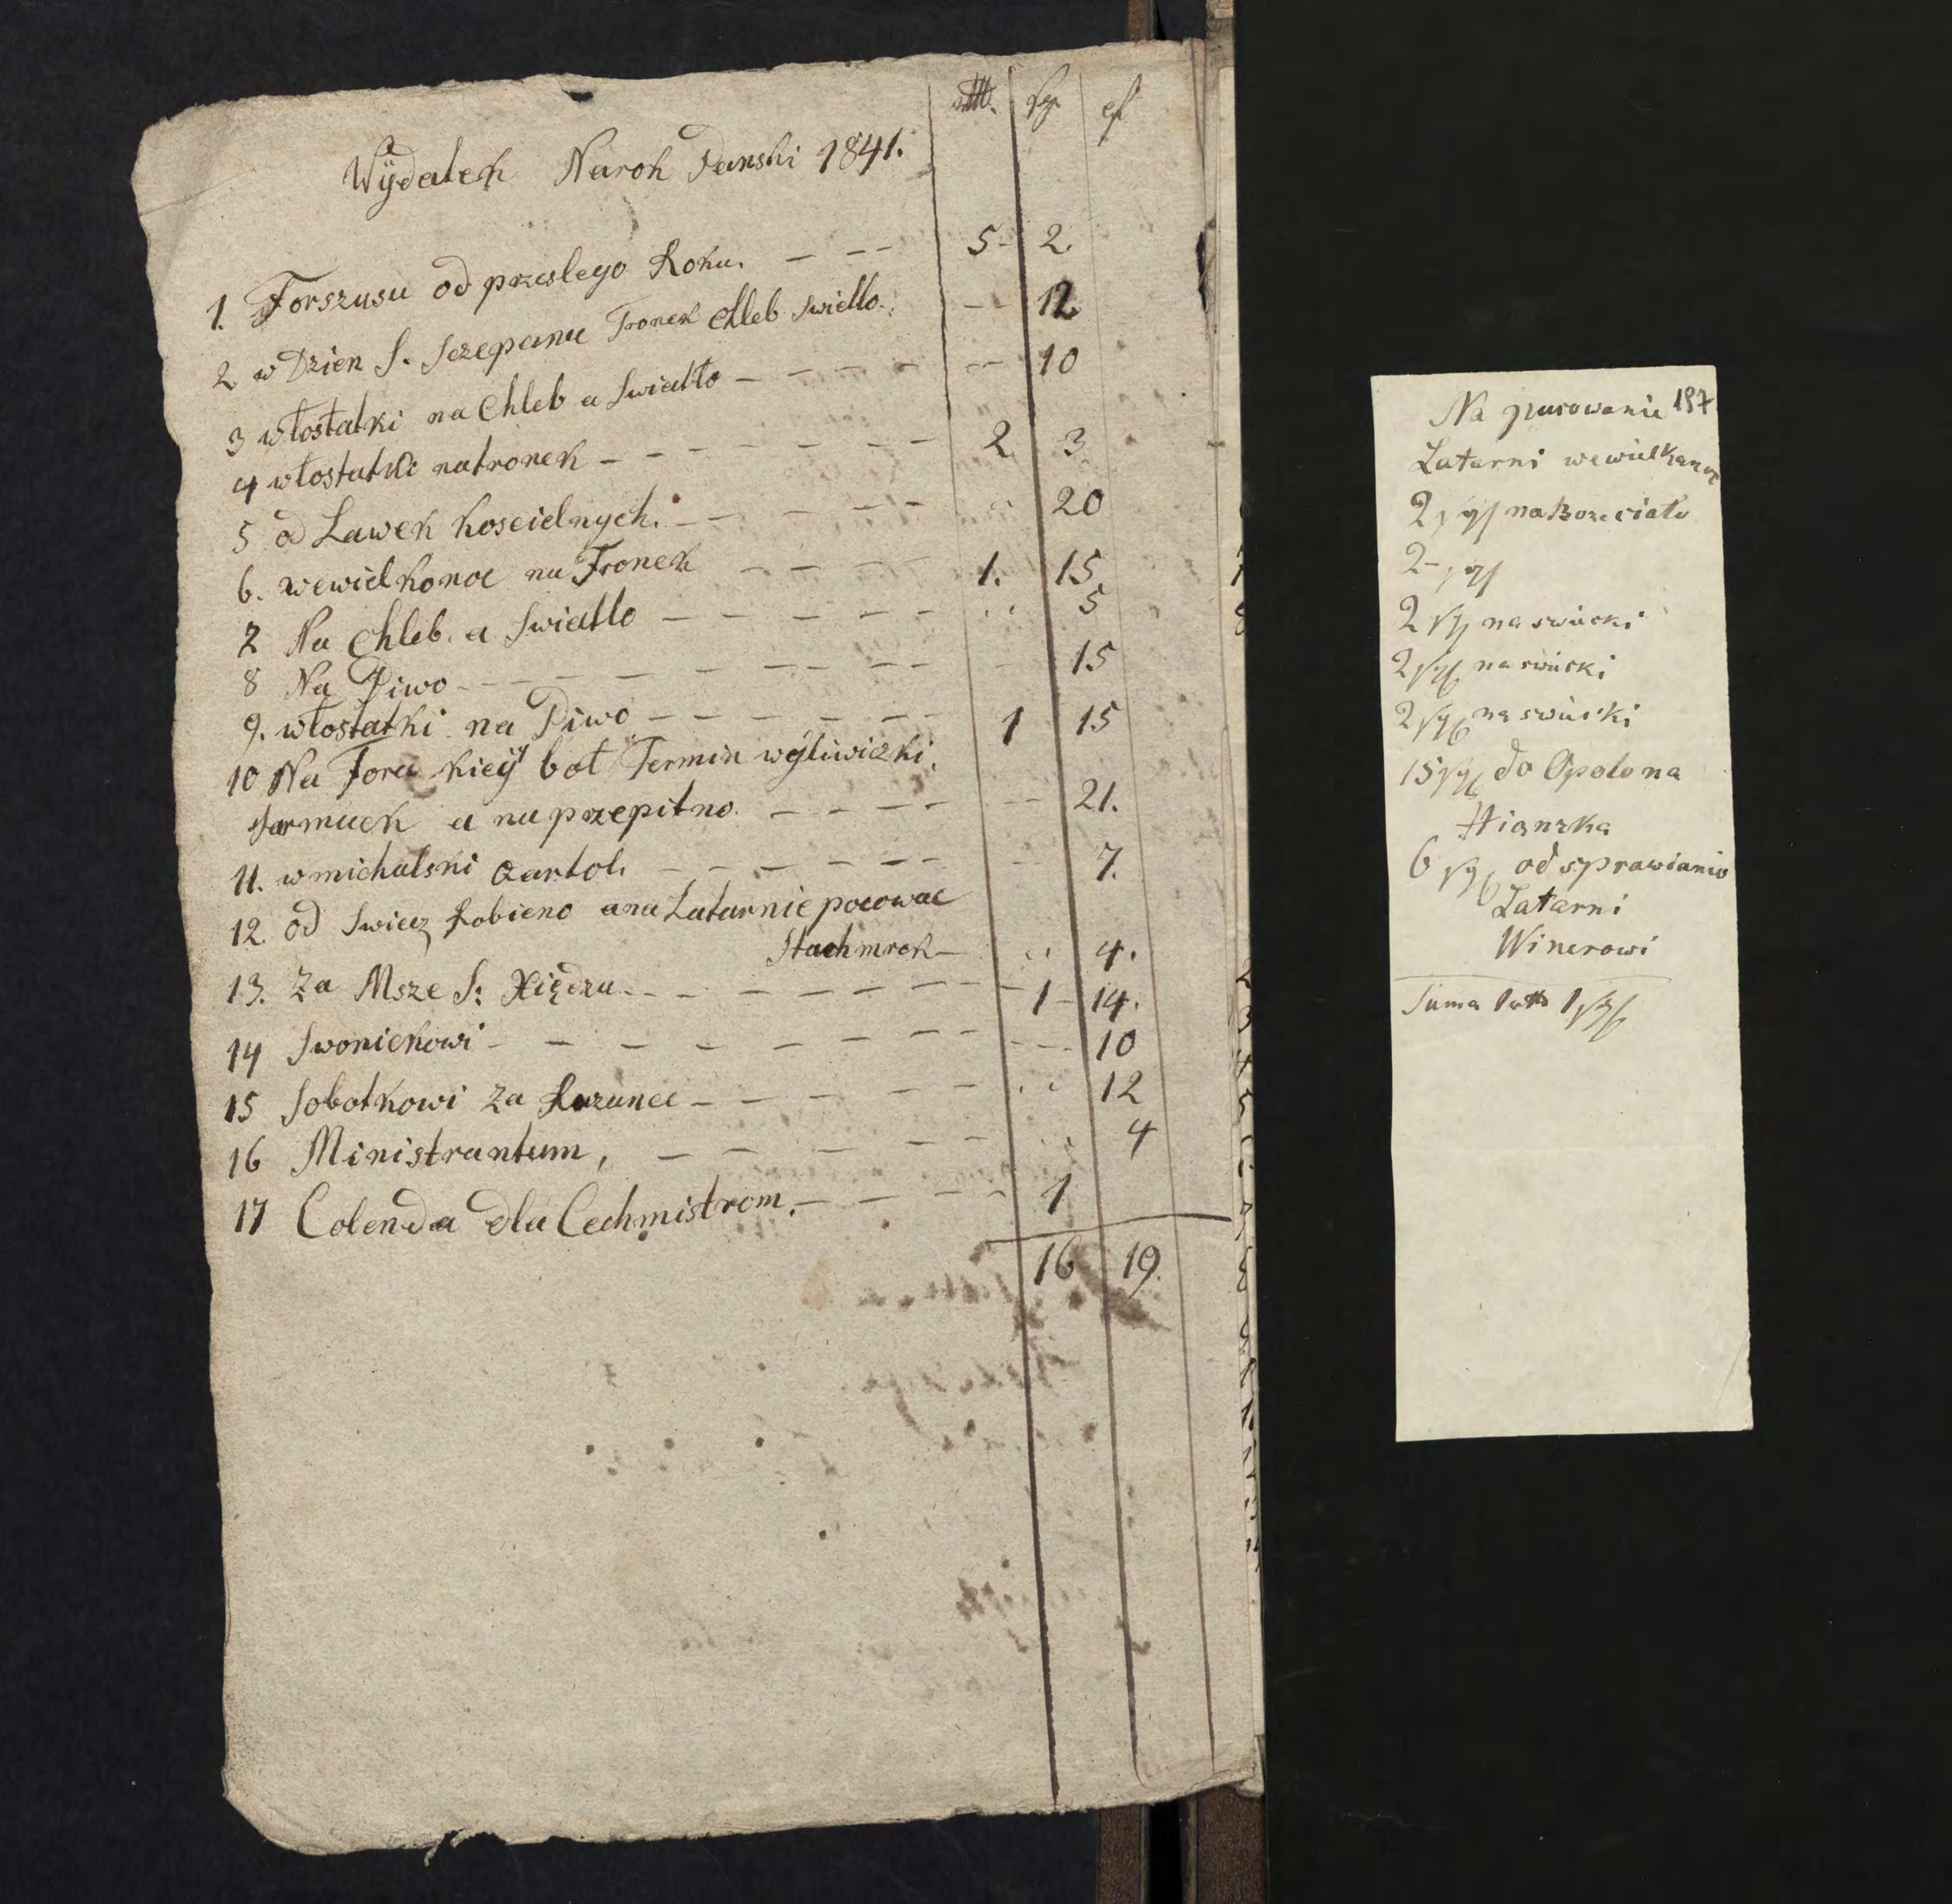 Wÿdatek Narok Panski 1841.
1. Forszusu od przeslego Roku. — — — 5 - 2.
2 w Dzien S. Sczepana Tronek Chleb Swiatlo. — — 12
3 włostatki na Chleb a Swiatło — — — — — — 10
4 włostatki natronek — — — — — — 2. 3.
5 od Lawek Koscielnych. — — — — — 20
6. wewielkonoc na Tronek — — — — 1. 15.
7 Na Chleb. a Swiatlo — — — — — 5
8 Na Piwo — — — — — — — 15
9. włostatki na Piwo — — — — — — 1 15
10 Na Fora kieÿ bol Termin wÿliwiczki.
Jarmack a na przepitno. — — — — — — 21.
11. w michalski Qartol. — — — — — — 7.
12. od Swiecz Robieno ana Latarnie pocowac
Stachmrok — 4.
13. Za Msze S: Xiędzu. — — — — — — — 1 - 14.
14 Swonickowi — — — — — — — — — 10
15 Sobotkowi Za Rozance — — — — — — 12
16 Ministrantum, — — — — — 4
17 Colenda dla Cechmistrom. — — — — 1
16 19.
Na 187
Latarni wewielkanoc
2 sgl na Boze ciało
2 - sgl
2 sgl na swiecki
2 sgl na swiecki
2 sgl na swiecki
15 sgl do Opolo na
6 sgl od sprawianio
Latarni
Winerowi
Suma 1 1 sgl